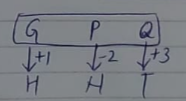 G P Q
+1 -2 +3
H H T